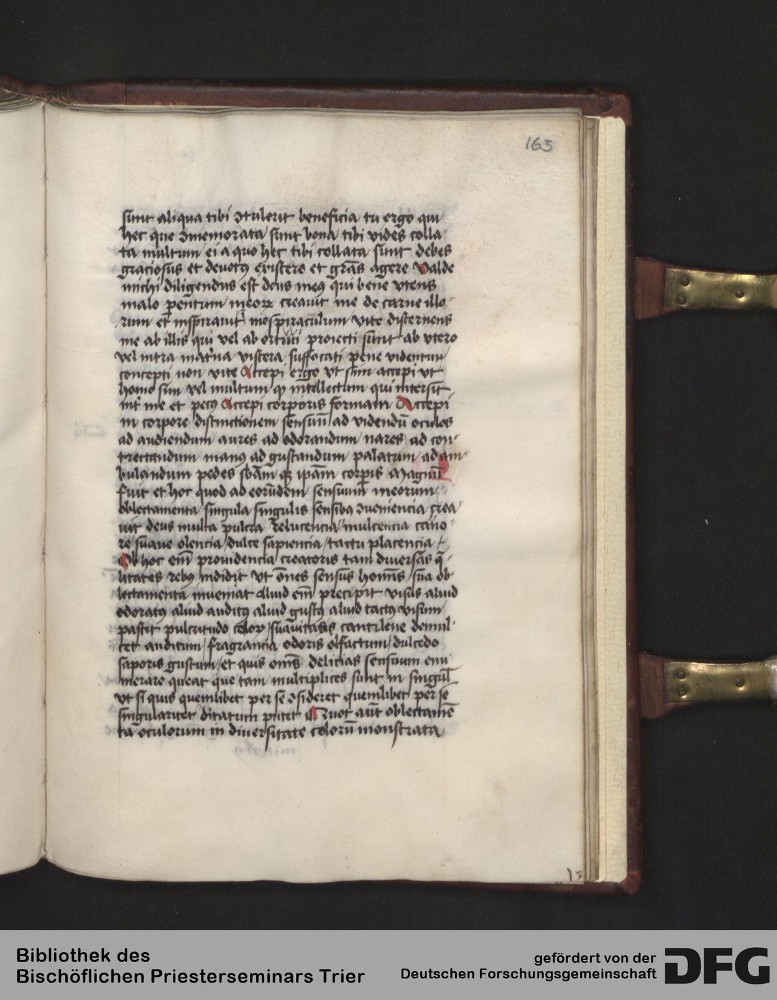 163
sunt aliqua tibi ɔtulerit beneficia tu ergo qui
hec que ɔmemorata sunt bona tibi vides colla
ta multum ei a quo hec tibi collata sunt debes
graciosus et devotꝰ existere et gr̄as agere Valde
michi diligendus est deus meꝰ qui bene vtens
malo pẽntum meoꝝ creauit me de carne illo-
rum et inspirauit inespiraculum vite discernens
me ab illis qui vel ab proiecti sunt ab vtero
vel intra mat̾na viscera suffocati pene videntur
concepti non vite Accepi ergo vt sim accepi vt
homo sim vel multum ꝙ intellectum qui intersit
int̾ me et pecꝰ Accepi corporis formam Accepi
in corpore distinctionem sensuū ad videndū oculos
ad audiendum aures ad odorandum nares ad con-
trectandum manꝰ ad gustandum palatum ad am-
bulandum pedes ip̄am corpis Magnū
fuit et hoc quod ad eorūdem sensuum meorum
oblectamenta singula singulis sensibꝰ ɔueniencia crea
uit deus multa pulcra relucencia/mulcencia cano-
re/suaue olencia/dulce sapiencia/tactu placencia
Ob hoc eī prouidencia creatoris tam diuersas q̄-
litates rebꝰ indidit vt om̄es sensus homīs/sua ob-
lectamenta inueniāt Aliud eī precipit visus aliud
odoratꝰ aliud auditꝰ aliud gustꝰ aliud tactꝰ visum
pascit pulcritudo coloꝝ/suauitatis cantilene demul-
cet auditum/fragrancia odoris olfactum/dulcedo
saporis gustum/et quis om̄s delicias sensuum enu-
merare queat que tam multiplices sunt in singul̄
vt si quis quemlibet per se ɔsideret quemlibet per se
singulariter ditatum putet Quot aūt oblectamē
ta oculorum in diuersitate colorū monstrata
Bibliothek des
Bischöflichen Priesterseminars Trier
gefördert von der
Deutschen Forschungsgemeinschaft
DFG